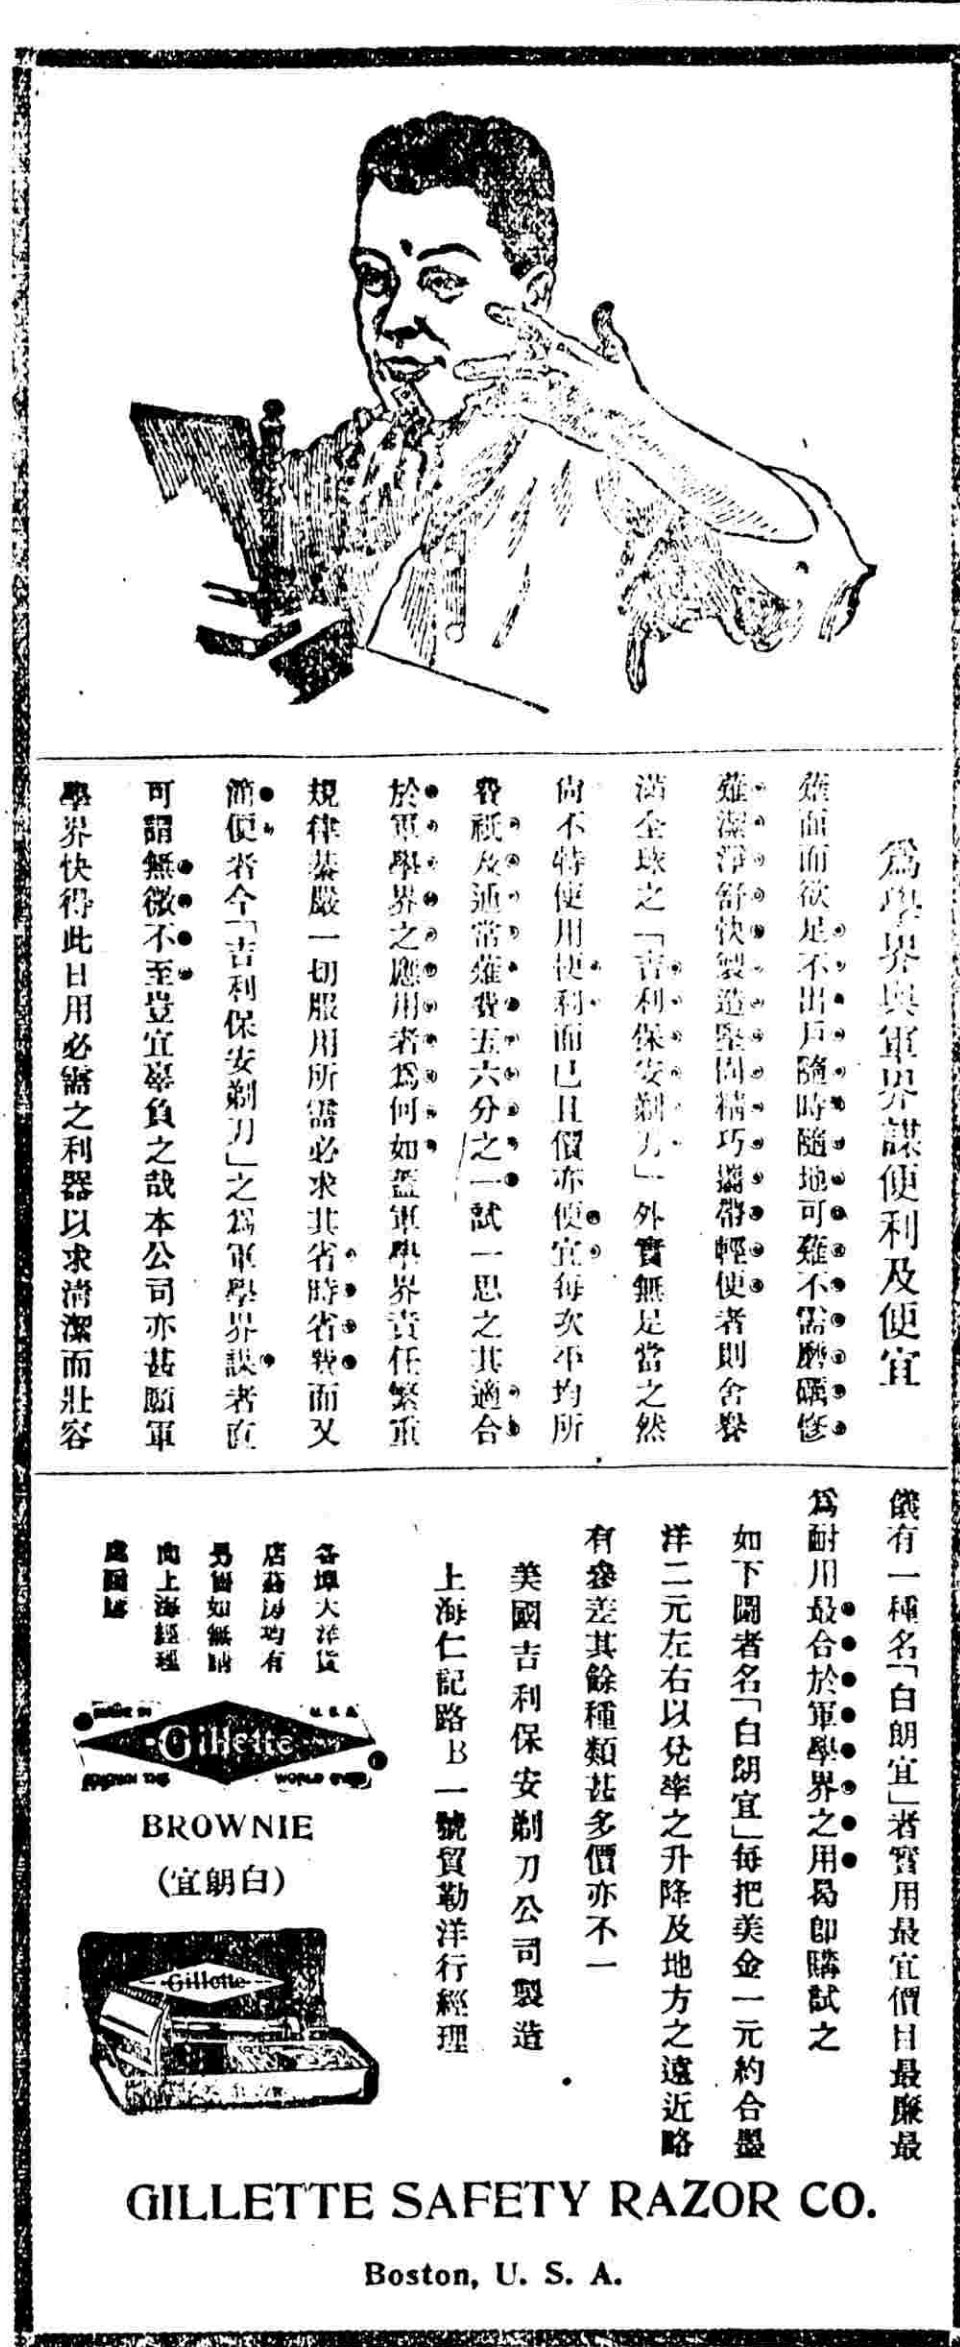 為學界與軍界謀便利及便宜
薙面而欲足不出戶隨時隨地可薙不需磨礪修
薙潔淨舒快製造堅固精巧攜帶輕便者則舍譽
滿全球之「吉利保安剃刀」外實無足當之然
尙不特使用便利而已且價亦便宜每次平均所
費祇及通常薙費五六分之一試一思之其適合
於軍學界之應用者為何如蓋軍學界責任繁重
規律綦嚴一切服用所需必求其省時省費而又
簡便者今「吉利保安剃刀」之為軍學界謀者直
可謂無微不至豈宜辜負之哉本公司亦甚願軍
學界快得此日用必需之利器以求清潔而壯容
儀有一種名「白朗宜」者實用最宜價目最廉最
為耐用最合於軍學界之用曷卽購試之
如下圖者名「白朗宜」每把美金一元約合墨
洋二元左右以兌率之升降及地方之遠近略
有參差其餘種類甚多價亦不一
美國吉利保安剃刀公司製造
上海仁記路B一號貿勒洋行經理
各埠大洋貨
店藥房均有
另售如無請
向上海經理
處函購
MADE IN U.S.A.
Gillette
KNOWN THE WORLD OVER
BROWNIE
(宜朗白)
Gillette
GILLETTE SAFETY RAZOR CO.
Boston, U. S. A.